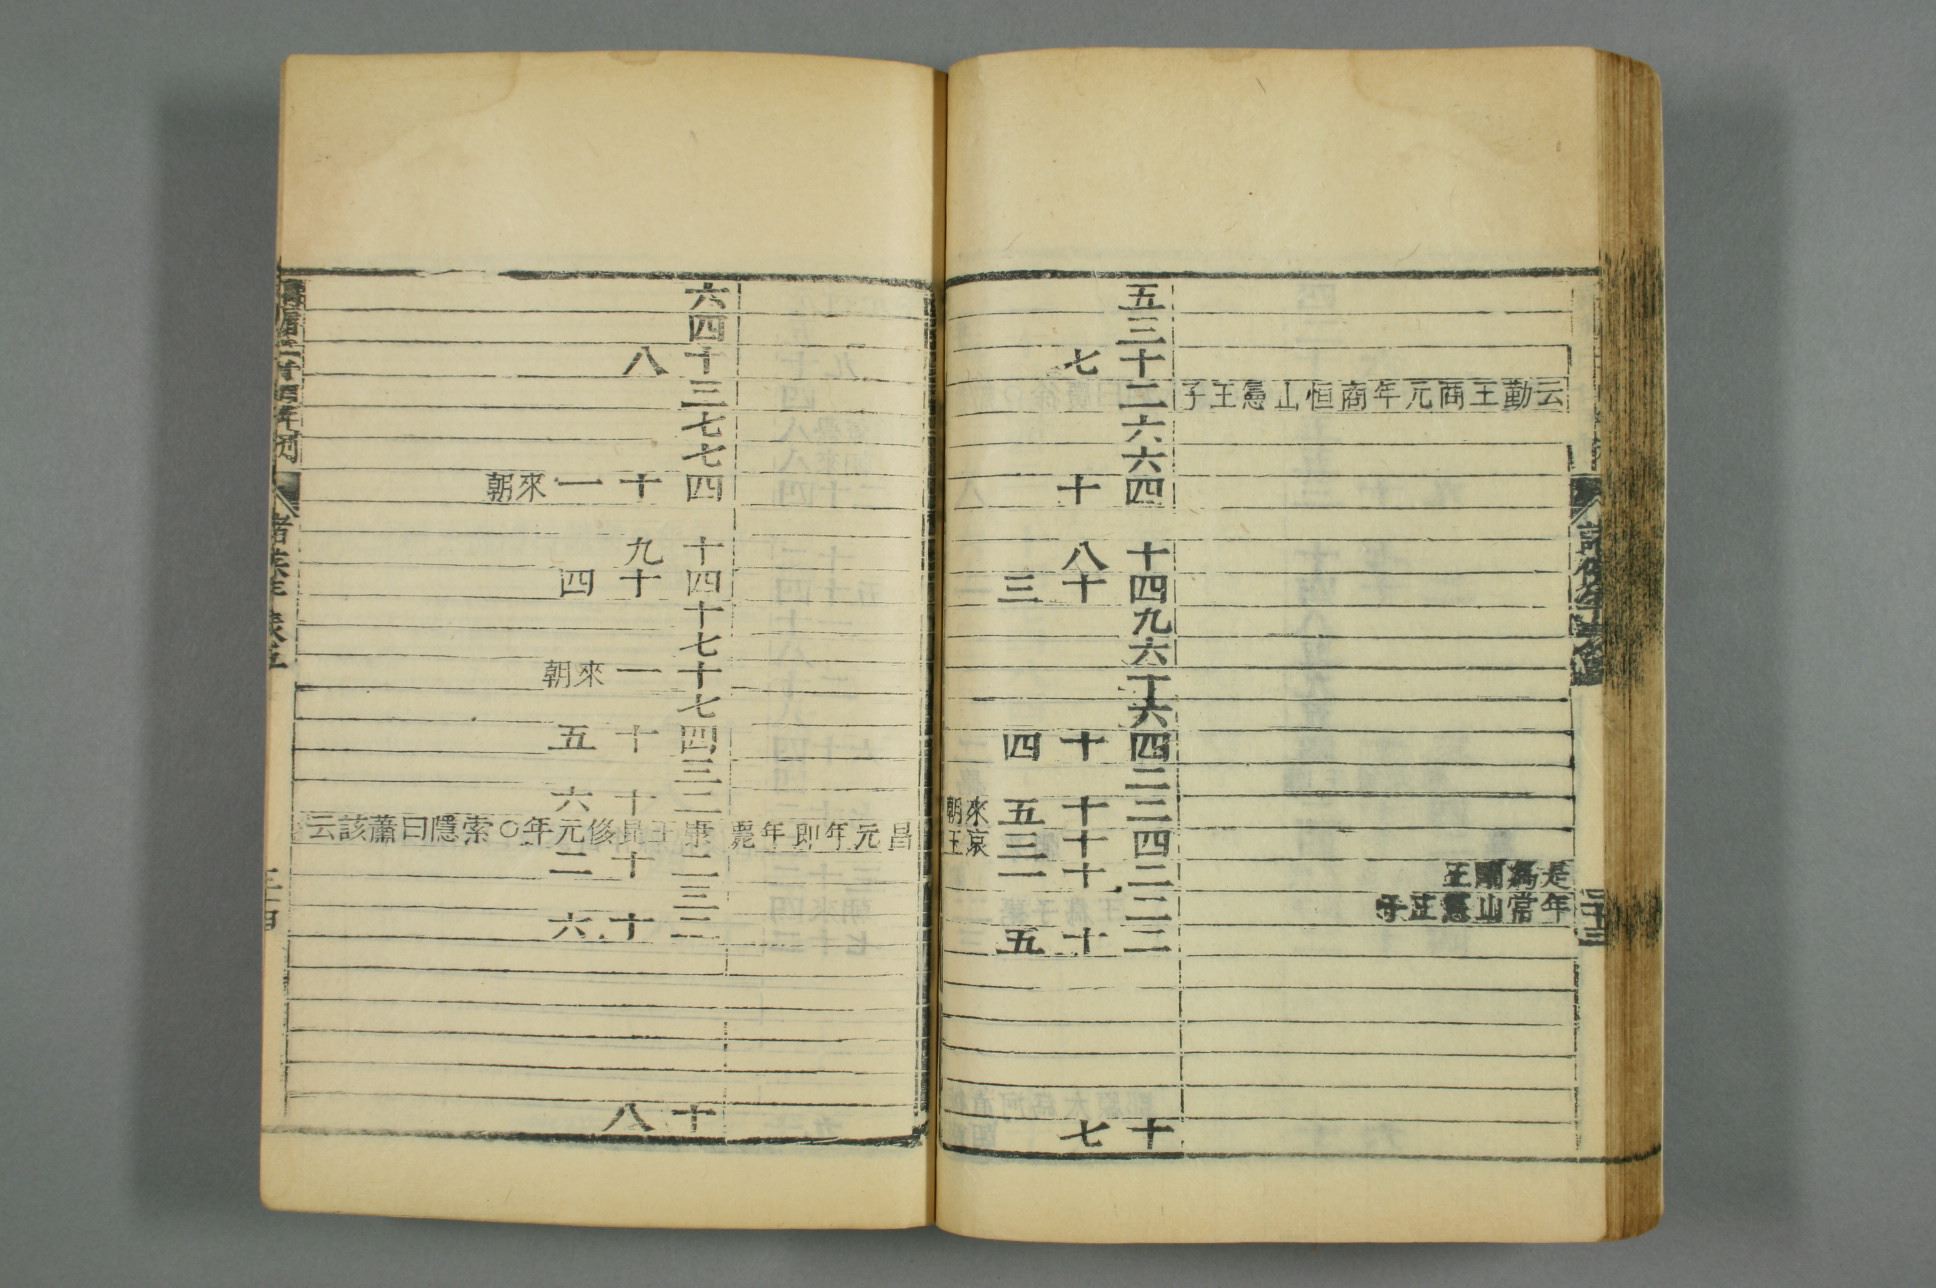 五
三
十七
云勤王商元年商恒山憲王子二
六
六
四十
十八
四十三
九
六
十
六
四十四
二
二十五來朝
四十三哀王
是爲頃王二十一
年常山憲王子二
二十五
十七
二十三
六
四
十八
三
七
七
四十一來朝
十九
四十四
十
七
十一來朝
七
四十五
三
三十六
昌元年即年薨康王昆侈元年○索隱曰蕭該云
二十二
三
二十六
十八
諸侯年表五